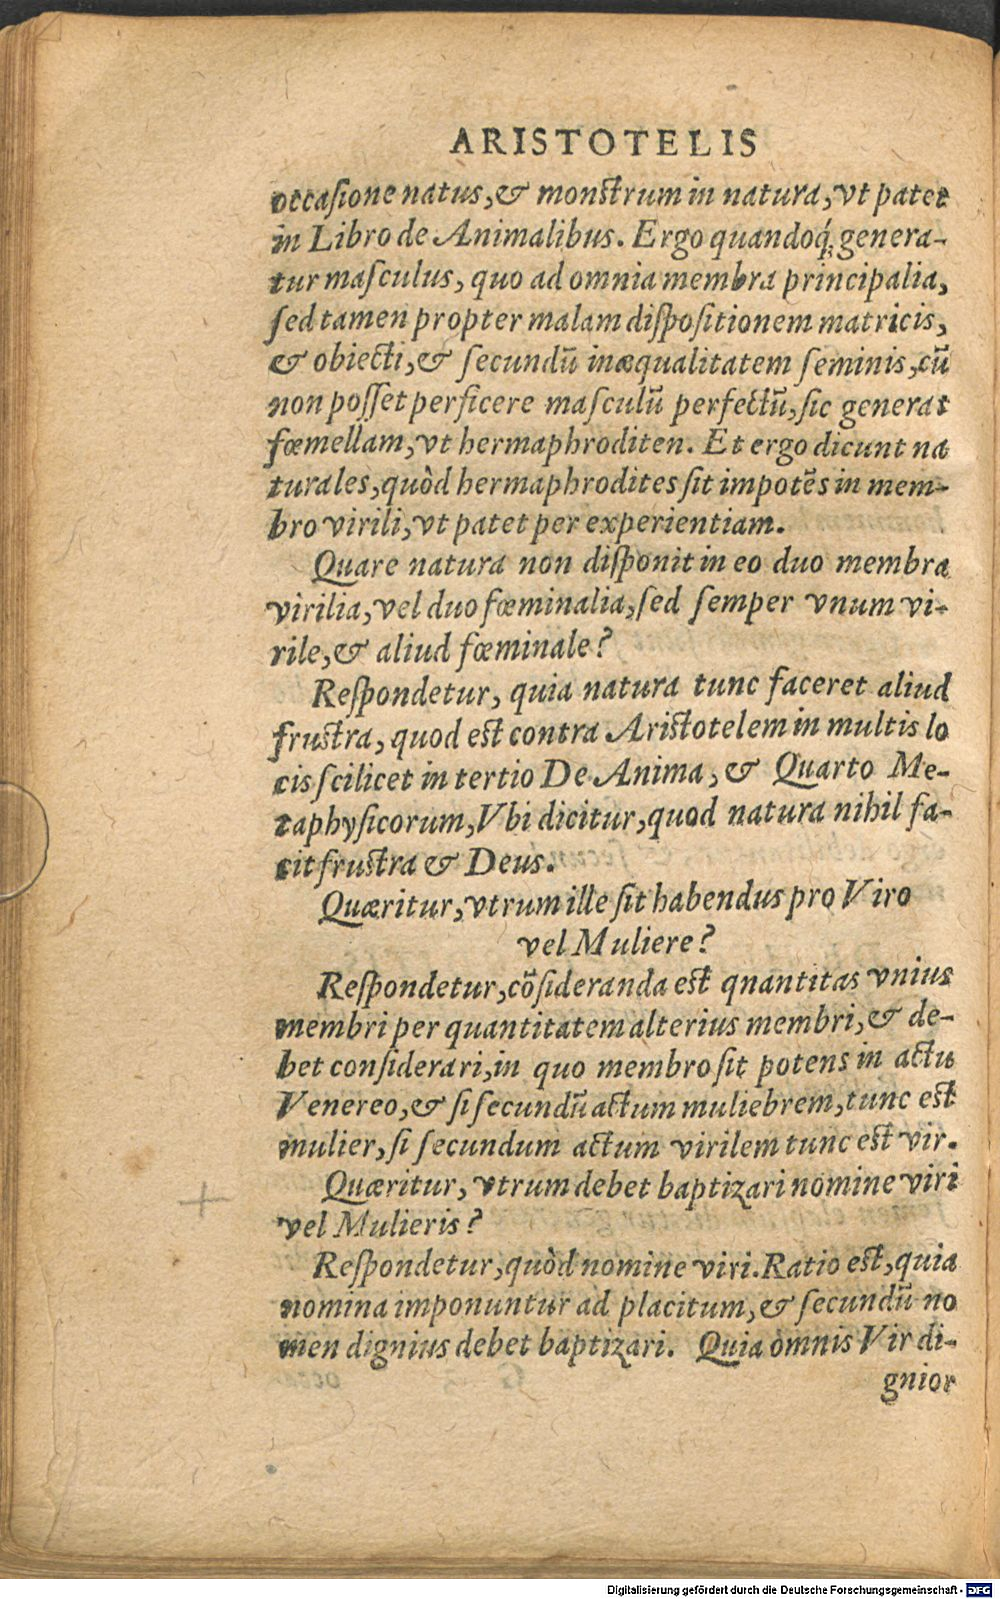 ARISTOTELIS
occaſione natus, & monſtrum in natura, vt patet
in Libro de Animalibus. Ergo quandoq́; genera-
tur maſculus, quo ad omnia membra principalia,
ſed tamen propter malam diſpoſitionem matricis,
& obiecti, & ſecundũ inæqualitatem ſeminis, cũ
non poſſet perficere maſculũ perfectũ, ſic generat
fœmellam, vt hermaphroditen. Et ergo dicunt na
turales, quòd hermaphrodites ſit impotẽs in mem-
bro virili, vt patet per experientiam.
Quare natura non diſponit in eo duo membra
virilia, vel duo fœminalia, ſed ſemper vnum vi-
rile, & aliud fœminale?
Reſpondetur, quia natura tunc faceret aliud
fruſtra, quod eſt contra Ariſtotelem in multis lo
cis ſcilicet in tertio De Anima, & Quarto Me-
taphyſicorum, Vbi dicitur, quod natura nihil fa-
cit fruſtra & Deus.
Quæritur, vtrum ille ſit habendus pro Viro
vel Muliere?
Reſpondetur, cõſideranda eſt qnantitas vnius
membri per quantitatem alterius membri, & de-
bet conſiderari, in quo membro ſit potens in actu
Venereo, & ſi ſecundũ actum muliebrem, tunc eſt
mulier, ſi ſecundum actum virilem tunc eſt vir.
Quæritur, vtrum debet baptizari nomine viri
vel Mulieris?
Reſpondetur, quòd nomine viri. Ratio eſt, quia
nomina imponuntur ad placitum, & ſecundũ no
men dignius debet baptizari. Quia omnis Vir di-
gnior
Digitalisierung gefördert durch die Deutsche Forschungsgemeinschaft - DFG